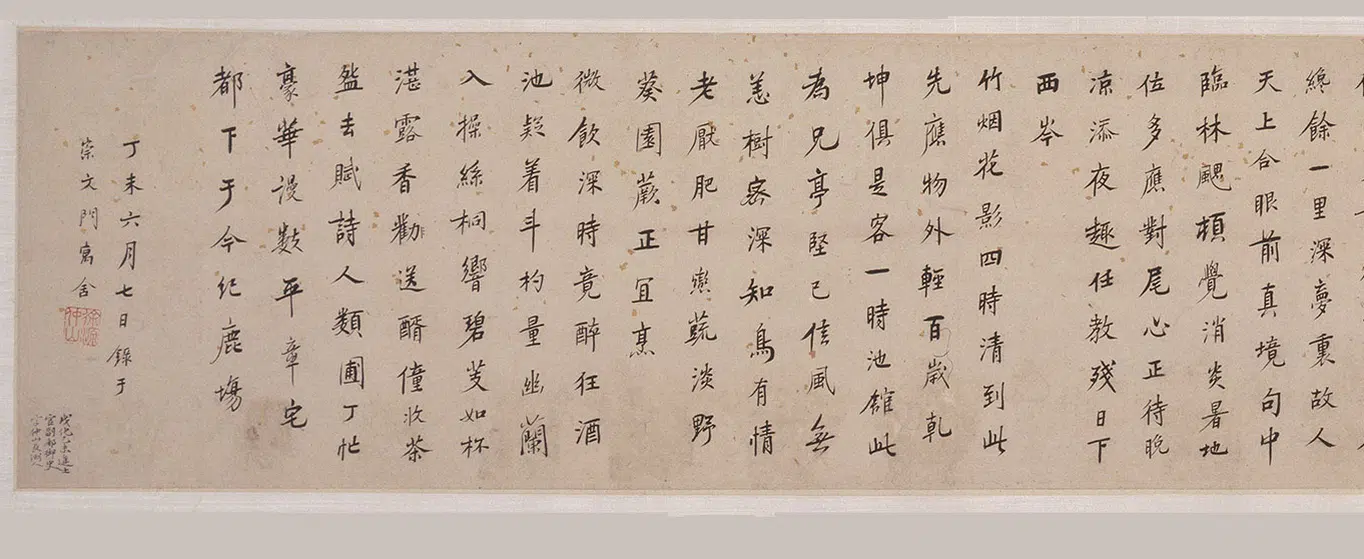 纔餘一里深夢裏故人
天上合眼前真境句中
臨林颸頓覺消炎暑地
佐多應對尾心正待晚
凉添夜趣任教殘日下
西岑
竹烟花影四時清到此
先應物外輕百歲乾
坤俱是客一時池館此
為兄亭堅已信風無
恙樹密深知鳥有情
老厭肥甘戀蔬淡野
葵園蕨正冝烹
微飲深時竟醉狂酒
池疑着斗杓量幽蘭
入操絲桐響碧芰如杯
湛露香勸送醑僮收茶
盌去賦詩人類圃丁忙
豪華謾數平章宅
都下于今紀鹿塲
丁未六月七日錄于
崇文門寓舍
徐源
仲山
成化乙未進士
官副都御史
字仲山長洲人